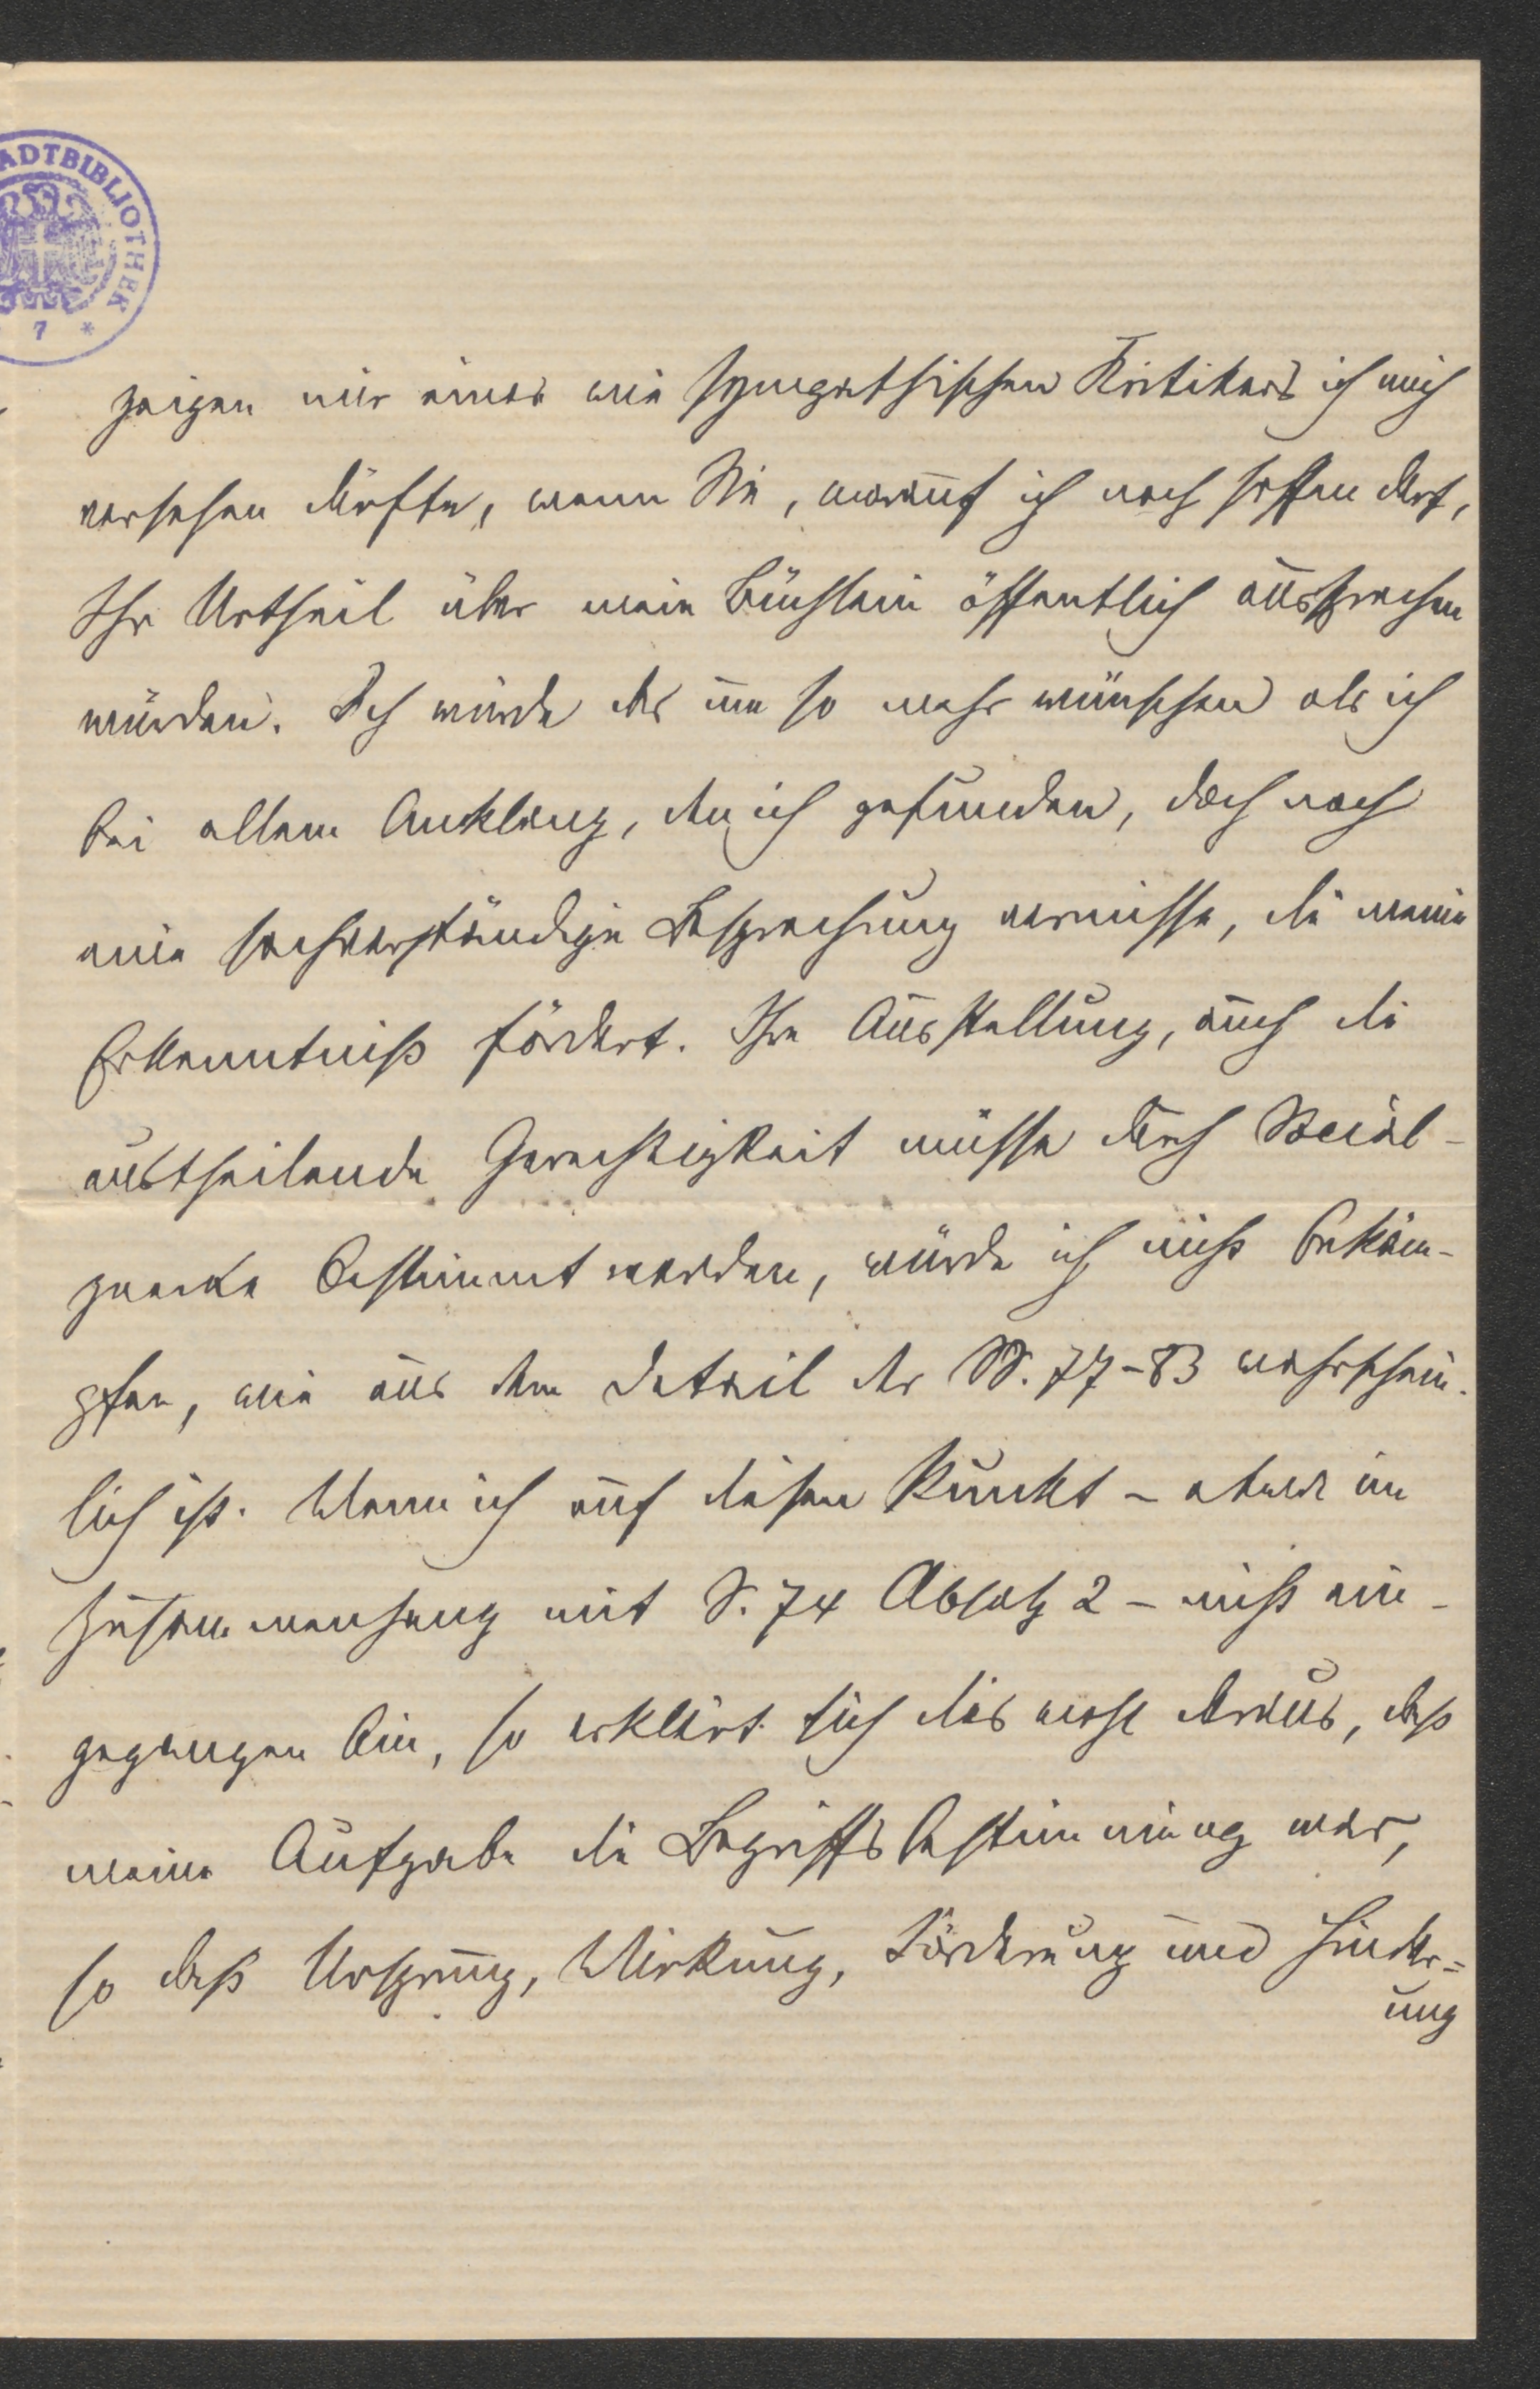 ADTBIBLIOTHEK
7 *
zeigen mir eines wie sympathischen Kritikers ich mich
versehen dürfte, wenn Sie, worauf ich noch hoffen darf,
Ihr Urtheil über mein Büchlein öffentlich aussprechen
würden. Ich würde das um so mehr wünschen als ich
bei allem Anklang, den ich gefunden, doch noch
eine sachverständige Besprechung vermisse, die meine
Erkenntniß fördert. Ihre Ausstellung, auch die
austheilende Gerechtigkeit müsse durch Social-
zwecke bestimmt werden, würde ich nicht bekäm-
pfen, wie aus dem Detail der SS. 77-83 wahrschein-
lich ist. Wenn ich auf diesen Punkt - etwa im
Zusammenhang mit S. 74 Absatz 2 - nicht ein-
gegangen bin, so erklärt sich dies wohl daraus, daß
meine Aufgabe die Begriffsbestimmung war,
so daß Ursprung, Wirkung, Förderung und Hinder=
ung